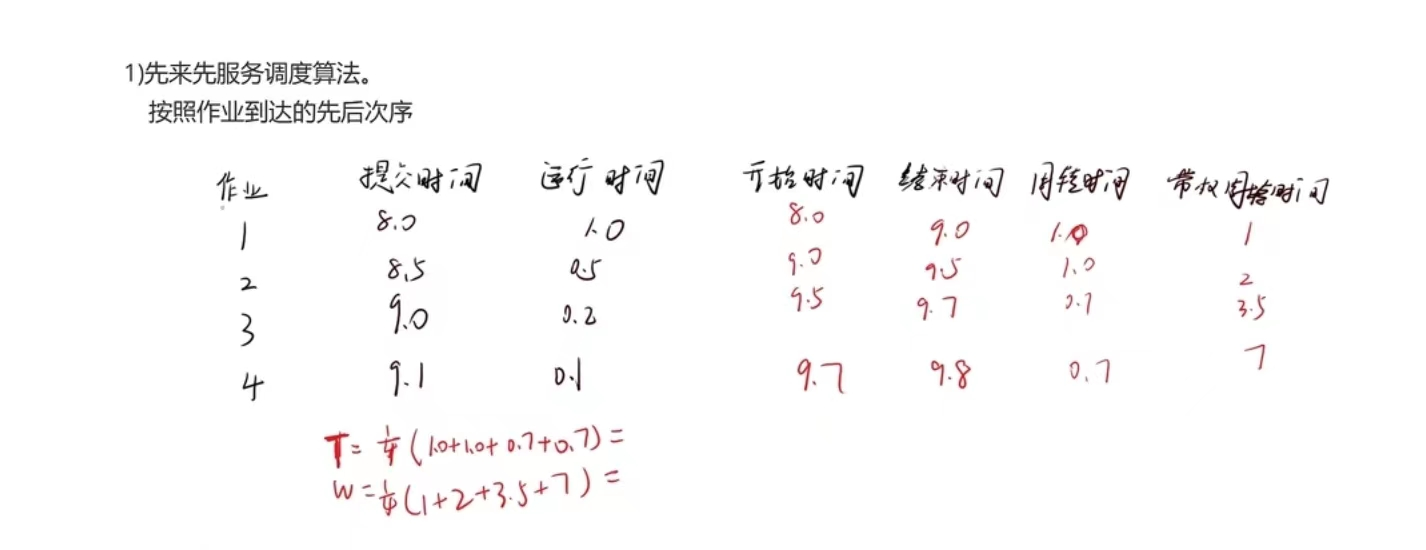 1)先来先服务调度算法。
按照作业到达的先后次序
作业 提交时间 运行时间 开始时间 结束时间 周转时间 带权周转时间
1 8.0 1.0 8.0 9.0 1.0 1
2 8.5 0.5 9.0 9.5 1.0 2
3 9.0 0.2 9.5 9.7 0.7 3.5
4 9.1 0.1 9.7 9.8 0.7 7
T = 1/4 (1.0+1.0+0.7+0.7) =
W = 1/4 (1+2+3.5+7) =